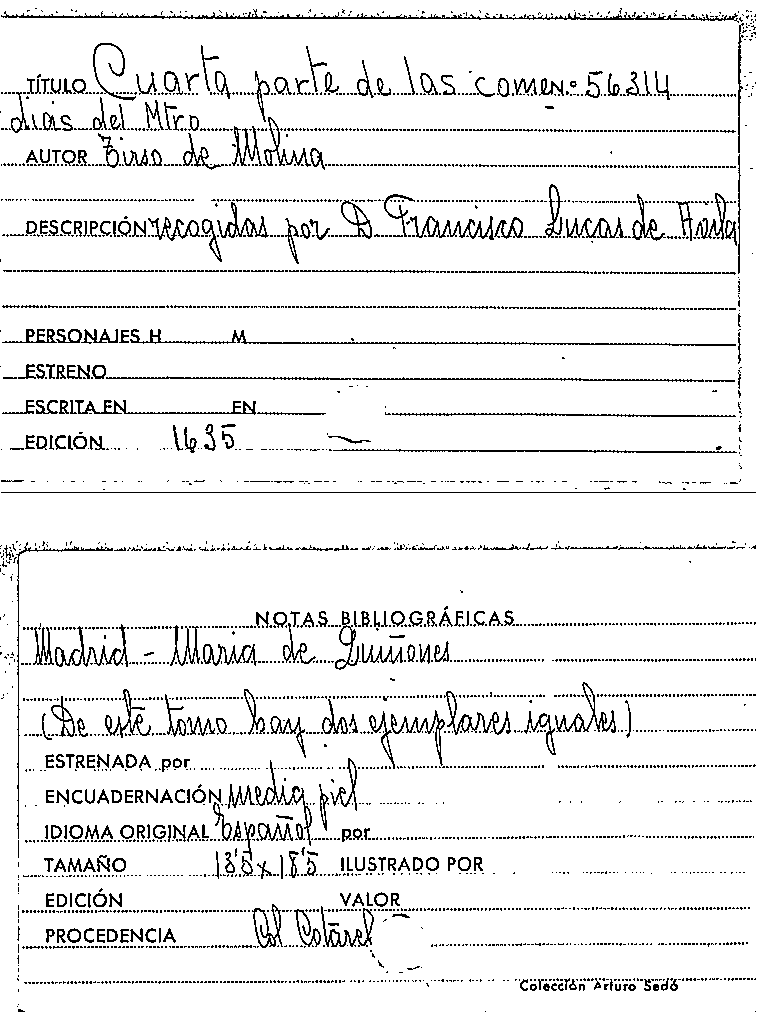 TÍTULO Cuarta parte de las come N.º 56314
dias del Mtro
AUTOR Tirso de Molina
DESCRIPCIÓN recogidas por D Francisco Lucas de Avila
PERSONAJES H M
ESTRENO
ESCRITA EN EN
EDICIÓN 1635
NOTAS BIBLIOGRÁFICAS
Madrid - Maria de Quiñones
(De este tomo hay dos ejemplares iguales)
ESTRENADA por
ENCUADERNACIÓN media piel
IDIOMA ORIGINAL Español por
TAMAÑO 13'5 x 18'5 ILUSTRADO POR
EDICIÓN VALOR
PROCEDENCIA Col Cotarel
Colección Arturo Sedó